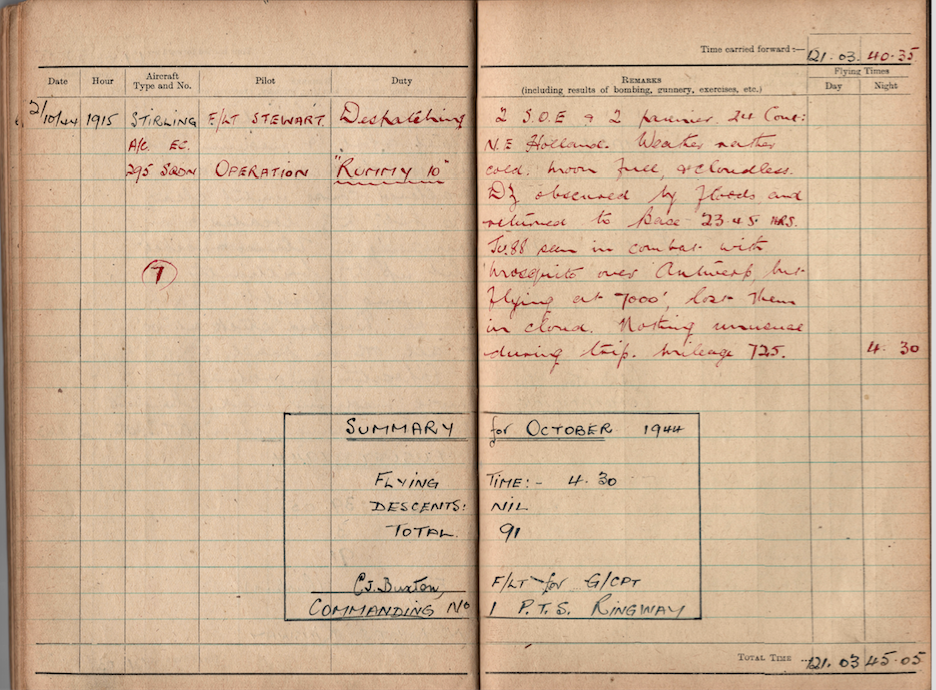 Time carried forward:— 121.03 40.35
Date Hour Aircraft Type and No. Pilot Duty
REMARKS (including results of bombing, gunnery, exercises, etc.)
Flying Times
Day Night
2/10/44 1915 STIRLING F/LT STEWART. Despatching
A/C. EC.
295 SQDN OPERATION "RUMMY 10"
7
2 S.O.E & 2 pannier. Cont:
N.E Holland. Weather rather
cold. moon full, & cloudless.
DZ obscured by floods and
returned to Base 23.45 HRS.
JU.88 seen in combat with
Mosquito over Antwerp, but
flying at 7000', lost them
in cloud. Nothing unusual
during trip. Mileage 725. 4.30
SUMMARY for OCTOBER 1944
FLYING TIME:- 4.30
DESCENTS: NIL
TOTAL. 91
C.J. Buxton, F/LT for G/CPT
COMMANDING NO 1 P.T.S. RINGWAY
TOTAL TIME ... 121.03 45.05